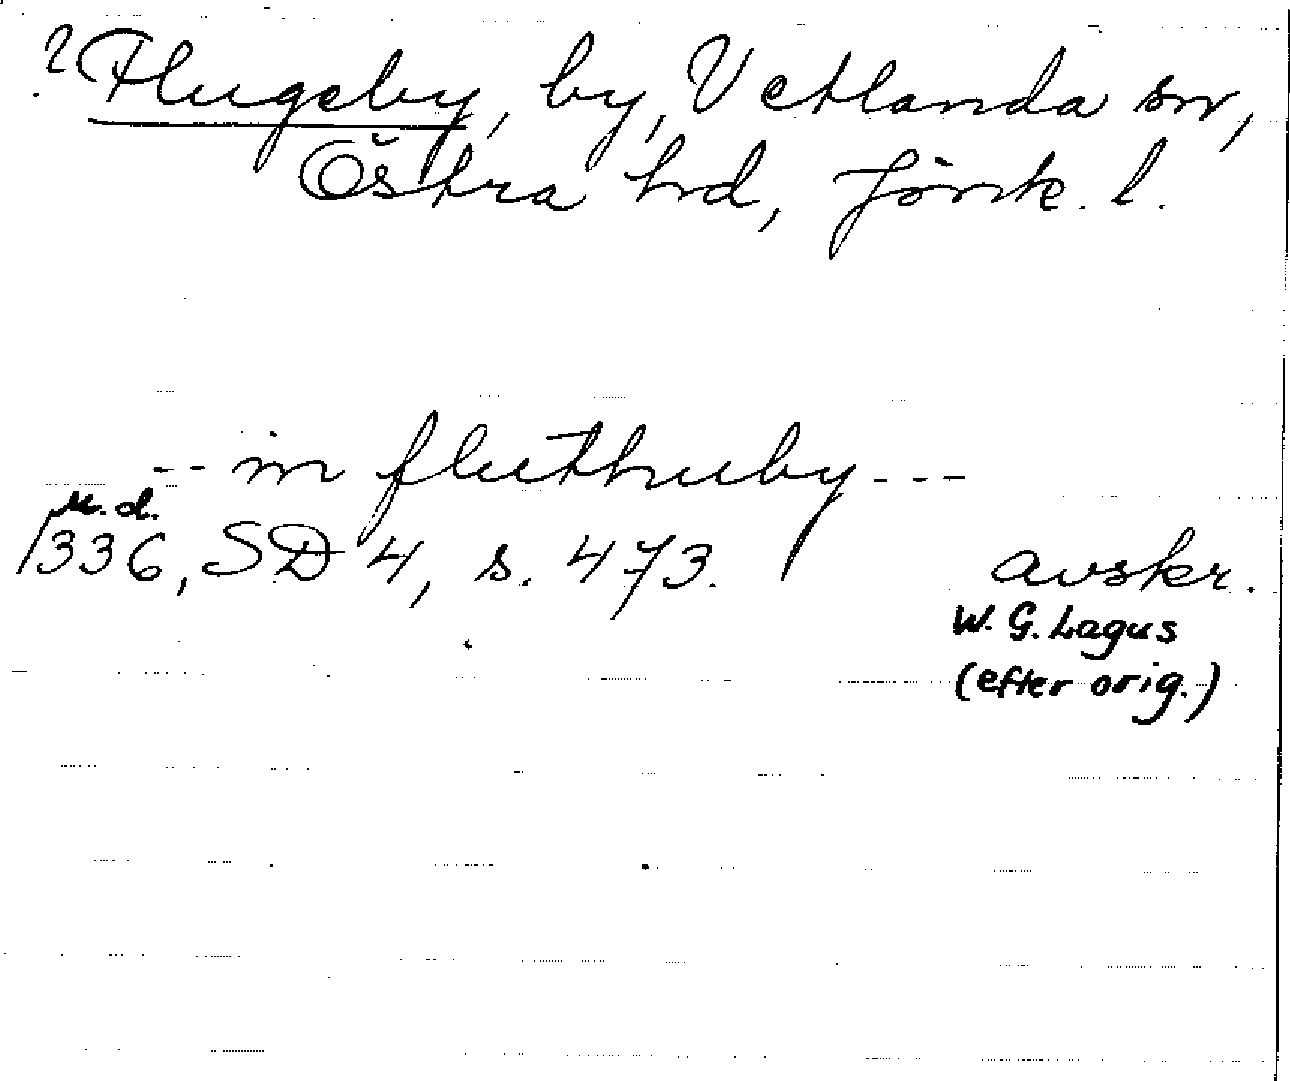 ? Flugeby, by, Vetlanda sn,
Östra hd, Jönk. l.
-- in fluthuby ---
u.d.
1336, SD 4, s. 473. avskr.
W. G. Lagus
(efter orig.)